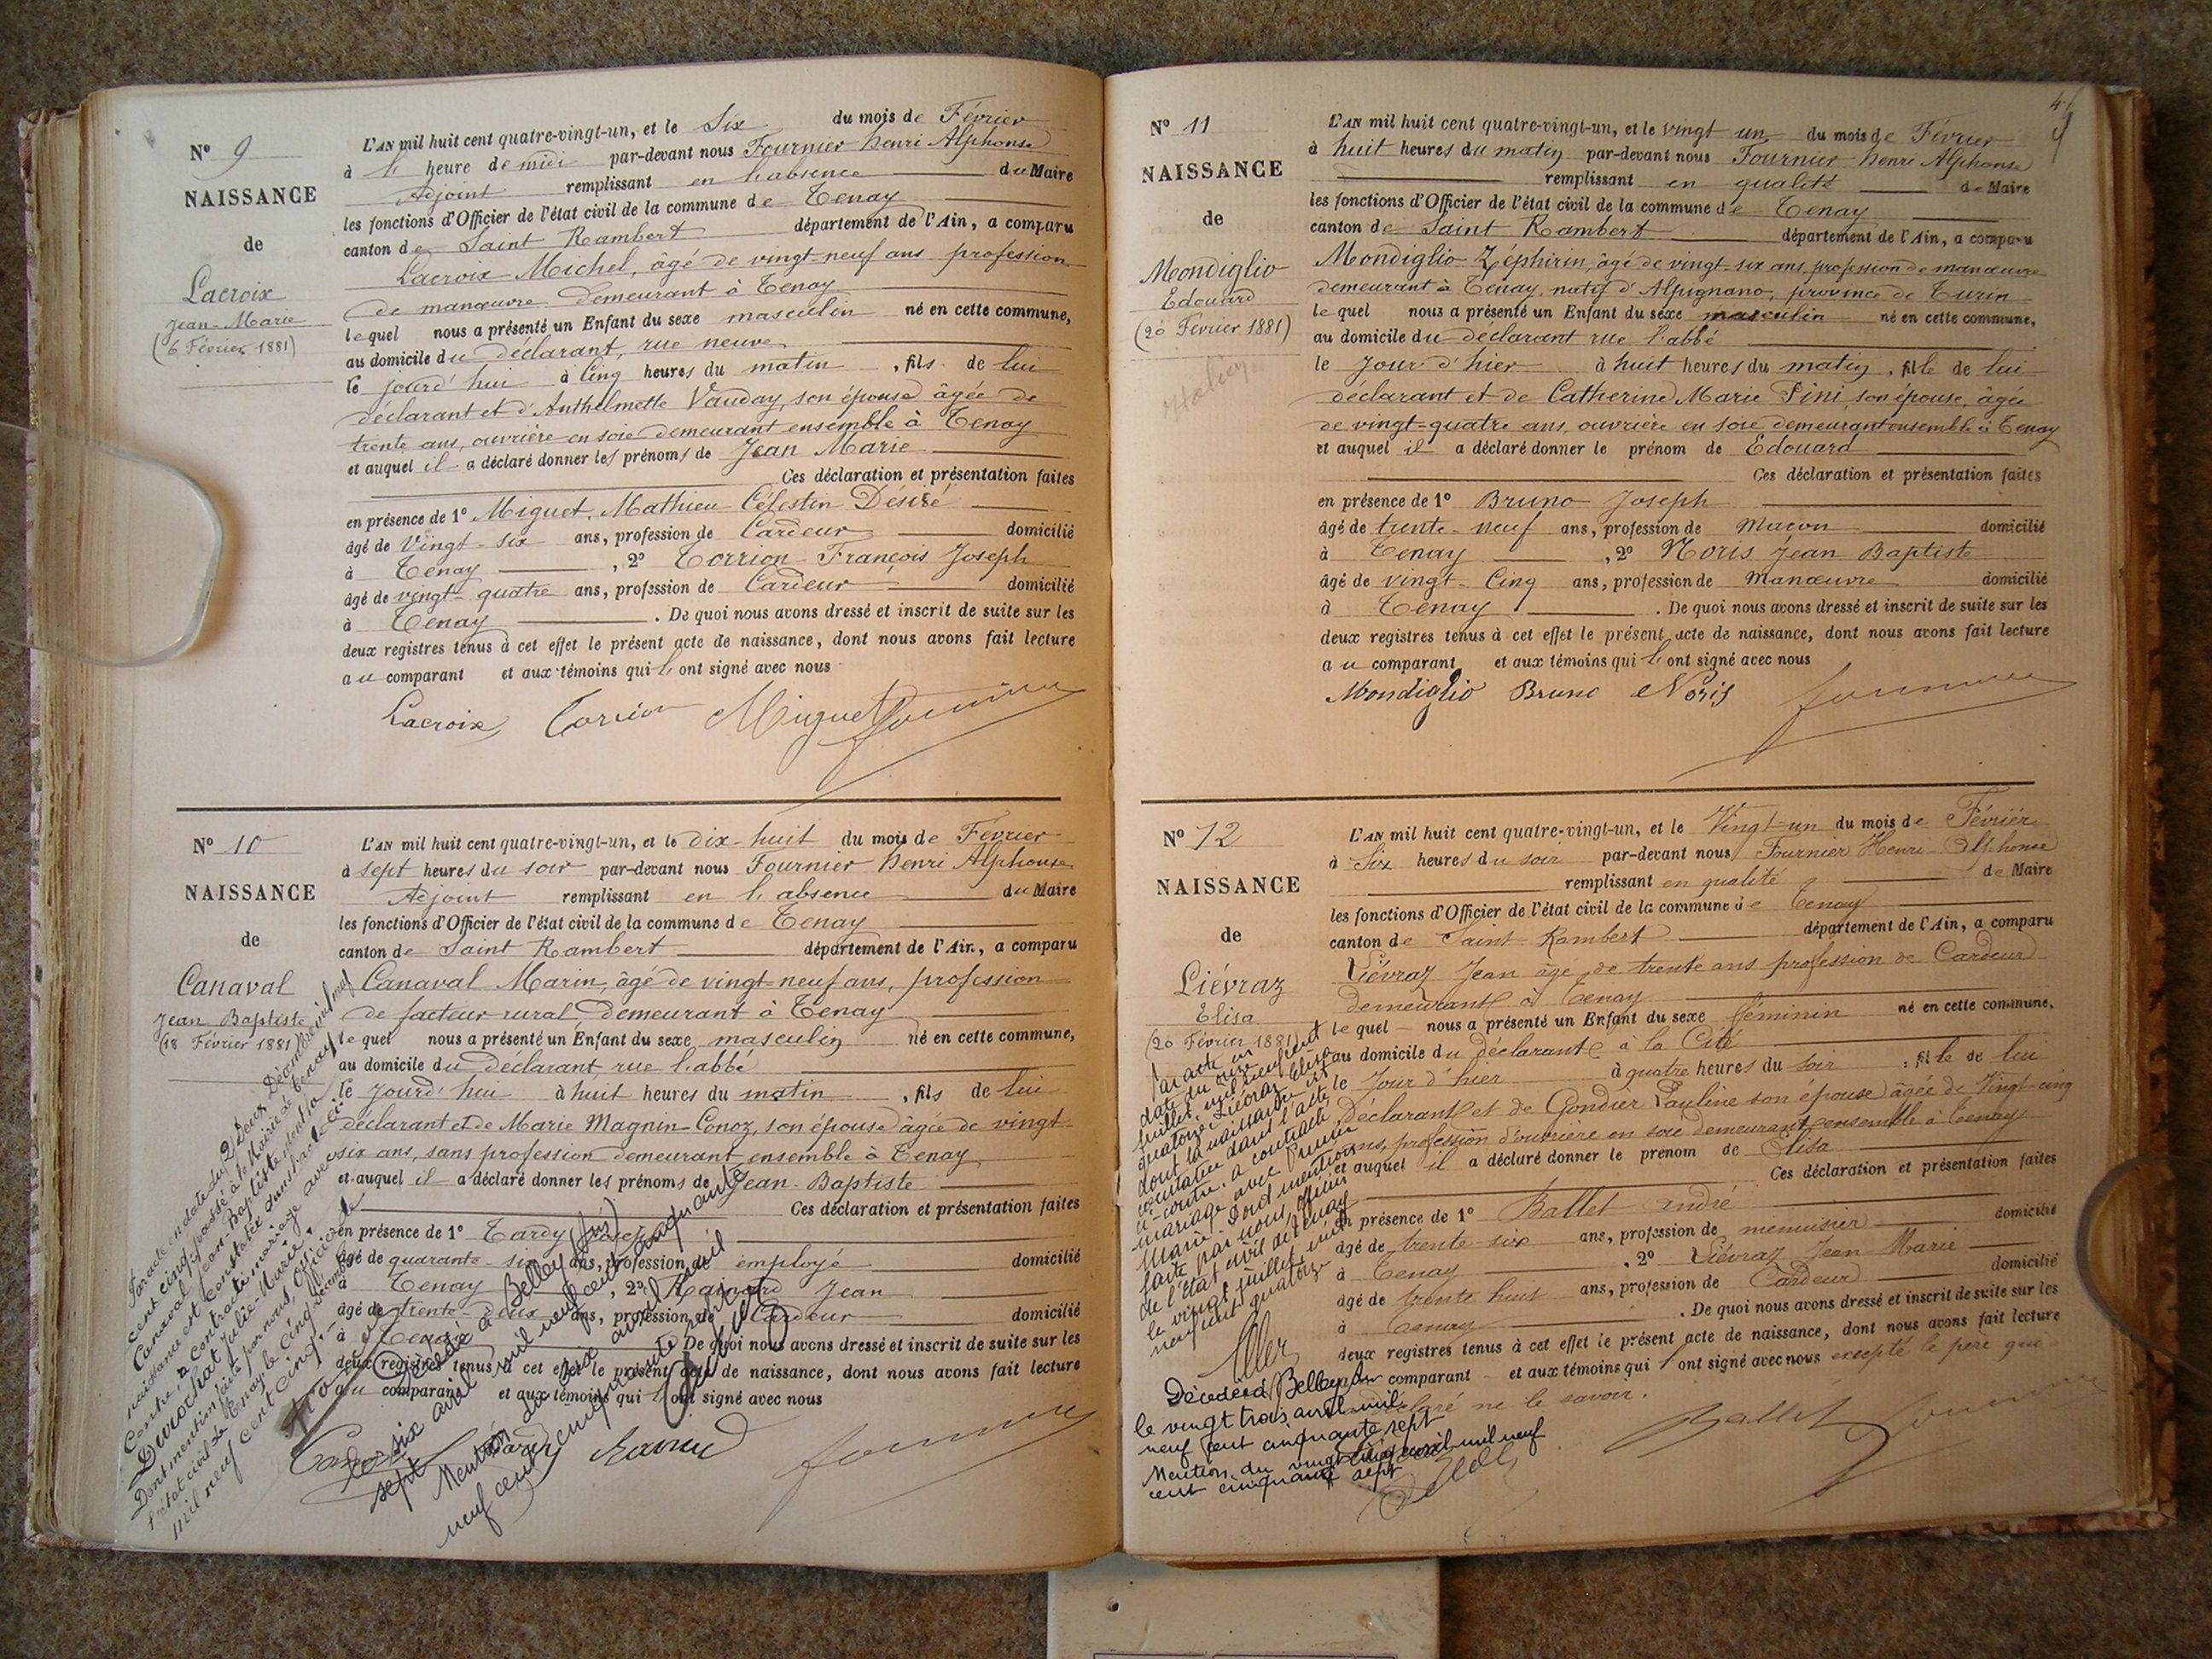 N° 9
NAISSANCE
de
Lacroix
Jean-Marie
(6 Février 1881)
L'AN mil huit cent quatre-vingt-un, et le Six du mois de Février
à l' heure de midi par-devant nous Fournier henri Alphonse
Adjoint remplissant en l'absence du Maire
les fonctions d'Officier de l'état civil de la commune de Tenay
canton de Saint Rambert département de l'Ain, a comparu
Lacroix Michel, âgé de vingt-neuf ans profession
de manœuvre demeurant à Tenay
lequel nous a présenté un Enfant du sexe masculin né en cette commune,
au domicile du déclarant, rue neuve
le jourd'hui à Cinq heures du matin, fils de lui
déclarant et d'Anthelmette Vauday, son épouse âgée de
trente ans, ouvrière en soie demeurant ensemble à Tenay
et auquel il a déclaré donner les prénoms de Jean Marie
Ces déclaration et présentation faites
en présence de 1° Miguet, Mathieu Célestin Désiré
âgé de Vingt-six ans, profession de Cardeur domicilié
à Tenay, 2° Torrion François Joseph
âgé de vingt-quatre ans, profession de Cardeur domicilié
à Tenay. De quoi nous avons dressé et inscrit de suite sur les
deux registres tenus à cet effet le présent acte de naissance, dont nous avons fait lecture
au comparant et aux témoins qui l'ont signé avec nous
Lacroix Torrion Miguet Fournier
N° 10
NAISSANCE
de
Canaval
Jean Baptiste
(18 Février 1881)
L'AN mil huit cent quatre-vingt-un, et le dix-huit du mois de Février
à sept heures du soir par-devant nous Fournier henri Alphonse
Adjoint remplissant en l'absence du Maire
les fonctions d'Officier de l'état civil de la commune de Tenay
canton de Saint Rambert département de l'Ain, a comparu
Canaval Marin, âgé de vingt-neuf ans, profession
de facteur rural, demeurant à Tenay
lequel nous a présenté un Enfant du sexe masculin né en cette commune,
au domicile du déclarant, rue l'abbé
le Jourd'hui à huit heures du matin, fils de lui
déclarant et de Marie Magnin-Conoz, son épouse âgée de vingt
six ans, sans profession demeurant ensemble à Tenay
et auquel il a déclaré donner les prénoms de Jean-Baptiste
Ces déclaration et présentation faites
en présence de 1° Tardy
âgé de quarante-six ans, profession de employé domicilié
à Tenay, 2° Jean
âgé de trente-deux ans, profession de Cardeur domicilié
à Tenay. De quoi nous avons dressé et inscrit de suite sur les
deux registres tenus à cet effet le présent acte de naissance, dont nous avons fait lecture
au comparant et aux témoins qui l'ont signé avec nous
Par acte en date du 2 Deux Décembre mil neuf
cent cinq, passé à la Mairie de Tenay
Canaval Jean-Baptiste, dont la
naissance est constatée dans l'acte ci-
contre, a contracté mariage avec
Durochat Julie-Marie.
Dont mention faite par nous, officier de
l'état civil de Tenay, le Cinq Décembre
mil neuf cent cinq.
Décédé à Belley (Ain)
le six avril mil neuf cent cinquante
sept
Mention du dix avril mil
neuf cent cinquante sept
N° 11
NAISSANCE
de
Mondiglio
Edouard
(20 Février 1881)
Italien
L'AN mil huit cent quatre-vingt-un, et le vingt un du mois de Février
à huit heures du matin par-devant nous Fournier henri Alphonse
remplissant en qualité de Maire
les fonctions d'Officier de l'état civil de la commune de Tenay
canton de Saint Rambert département de l'Ain, a comparu
Mondiglio Zéphirin, âgé de vingt-six ans, profession de manœuvre
demeurant à Tenay, natif d'Alpignano, province de Turin
lequel nous a présenté un Enfant du sexe masculin né en cette commune,
au domicile du déclarant rue l'abbé
le Jour d'hier à huit heures du matin, fils de lui
déclarant et de Catherine Marie Fini, son épouse, âgée
de vingt-quatre ans, ouvrière en soie, demeurant ensemble à Tenay
et auquel il a déclaré donner le prénom de Edouard
Ces déclaration et présentation faites
en présence de 1° Bruno Joseph
âgé de trente-neuf ans, profession de Maçon domicilié
à Tenay, 2° Noris Jean Baptiste
âgé de vingt-Cinq ans, profession de Manœuvre domicilié
à Tenay. De quoi nous avons dressé et inscrit de suite sur les
deux registres tenus à cet effet le présent acte de naissance, dont nous avons fait lecture
au comparant et aux témoins qui l'ont signé avec nous
Mondiglio Bruno Noris Fournier
N° 12
NAISSANCE
de
Liévraz
Elisa
(20 Février 1881)
L'AN mil huit cent quatre-vingt-un, et le Vingt-un du mois de Février
à Six heures du soir par-devant nous Fournier Henri Alphonse
remplissant en qualité de Maire
les fonctions d'Officier de l'état civil de la commune de Tenay
canton de Saint-Rambert département de l'Ain, a comparu
Liévraz Jean âgé de trente ans profession de Cardeur
demeurant à Tenay
lequel nous a présenté un Enfant du sexe féminin né en cette commune,
au domicile du déclarant à la Cité
le Jour d'hier à quatre heures du soir, fille de lui
déclarant et de Gondier Pauline son épouse âgée de Vingt-cinq
ans, profession d'ouvrière en soie demeurant ensemble à Tenay
et auquel il a déclaré donner le prénom de Elisa
Ces déclaration et présentation faites
en présence de 1° Ballet André
âgé de trente-six ans, profession de menuisier domicilié
à Tenay, 2° Liévraz Jean Marie
âgé de trente huit ans, profession de Cardeur domicilié
à Tenay. De quoi nous avons dressé et inscrit de suite sur les
deux registres tenus à cet effet le présent acte de naissance, dont nous avons fait lecture
au comparant et aux témoins qui l'ont signé avec nous excepté le père qui
a déclaré ne le savoir.
Ballet Fournier
Par acte en
date du onze
juillet mil neuf cent
quatorze Liévraz Elisa
dont la naissance est
constatée dans l'acte
ci-contre, a contracté
mariage avec
Marie. Dont mention
faite par nous, officier
de l'état civil de Tenay
le vingt juillet mil
neuf cent quatorze
Décédée à Belley
le vingt trois avril mil
neuf cent cinquante sept
Mention du vingt cinq avril mil neuf
cent cinquante sept